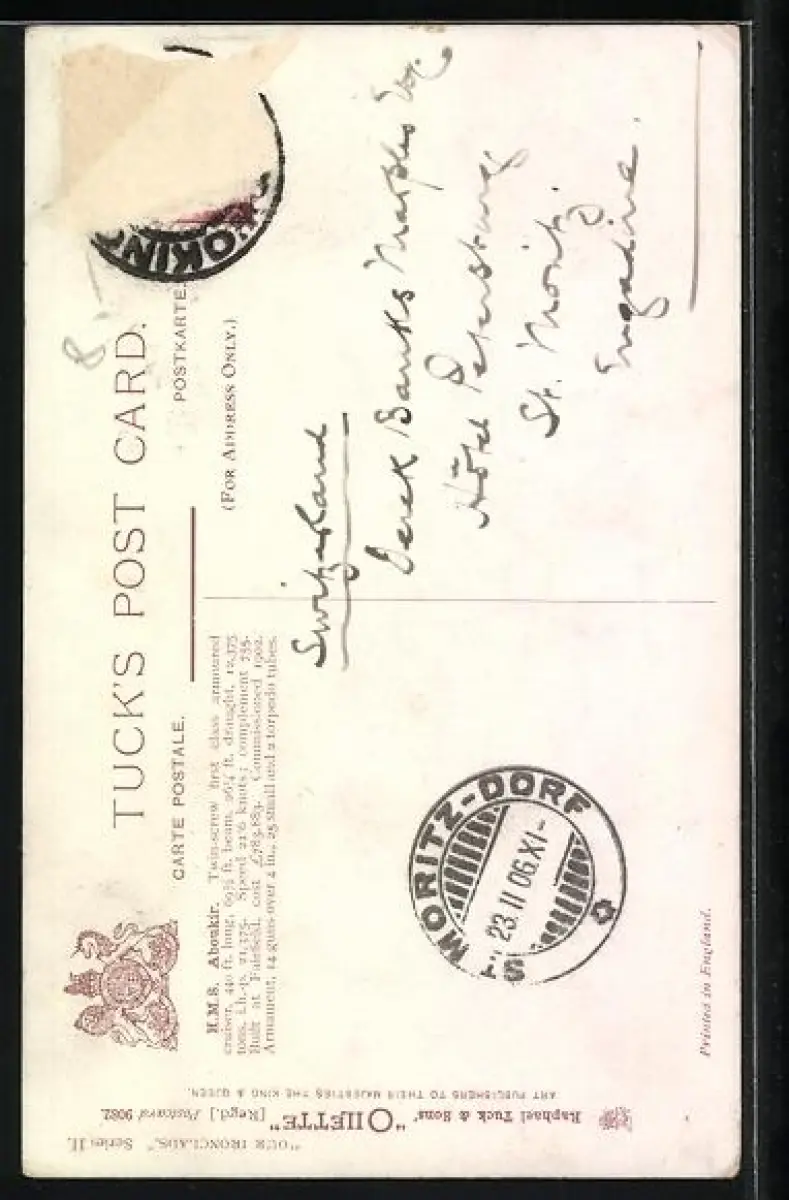 TUCK'S POST CARD.
CARTE POSTALE.
POSTKARTE.
(FOR ADDRESS ONLY.)
WOKING
8
H.M.S. Aboukir. Twin-screw first class armoured
cruiser, 440 ft. long, 69½ ft. beam, 26¼ ft. draught, 12,375
tons, I.h.-p. 21,375. Speed 21·6 knots; complement 755.
Built at Fairfield, cost £783,883. Commissioned 1902.
Armament, 14 guns over 4 in., 25 small and 2 torpedo tubes.
Switzerland
Derek Banks Marples Esq.
Hôtel Petersburg
St. Moritz
Engadine.
ST. MORITZ-DORF
23.II 06.XI-
Printed in England.
"OUR IRONCLADS," Series II.
Raphael Tuck & Sons' "OILETTE" [Regd.] Postcard 9082.
ART PUBLISHERS TO THEIR MAJESTIES THE KING & QUEEN.